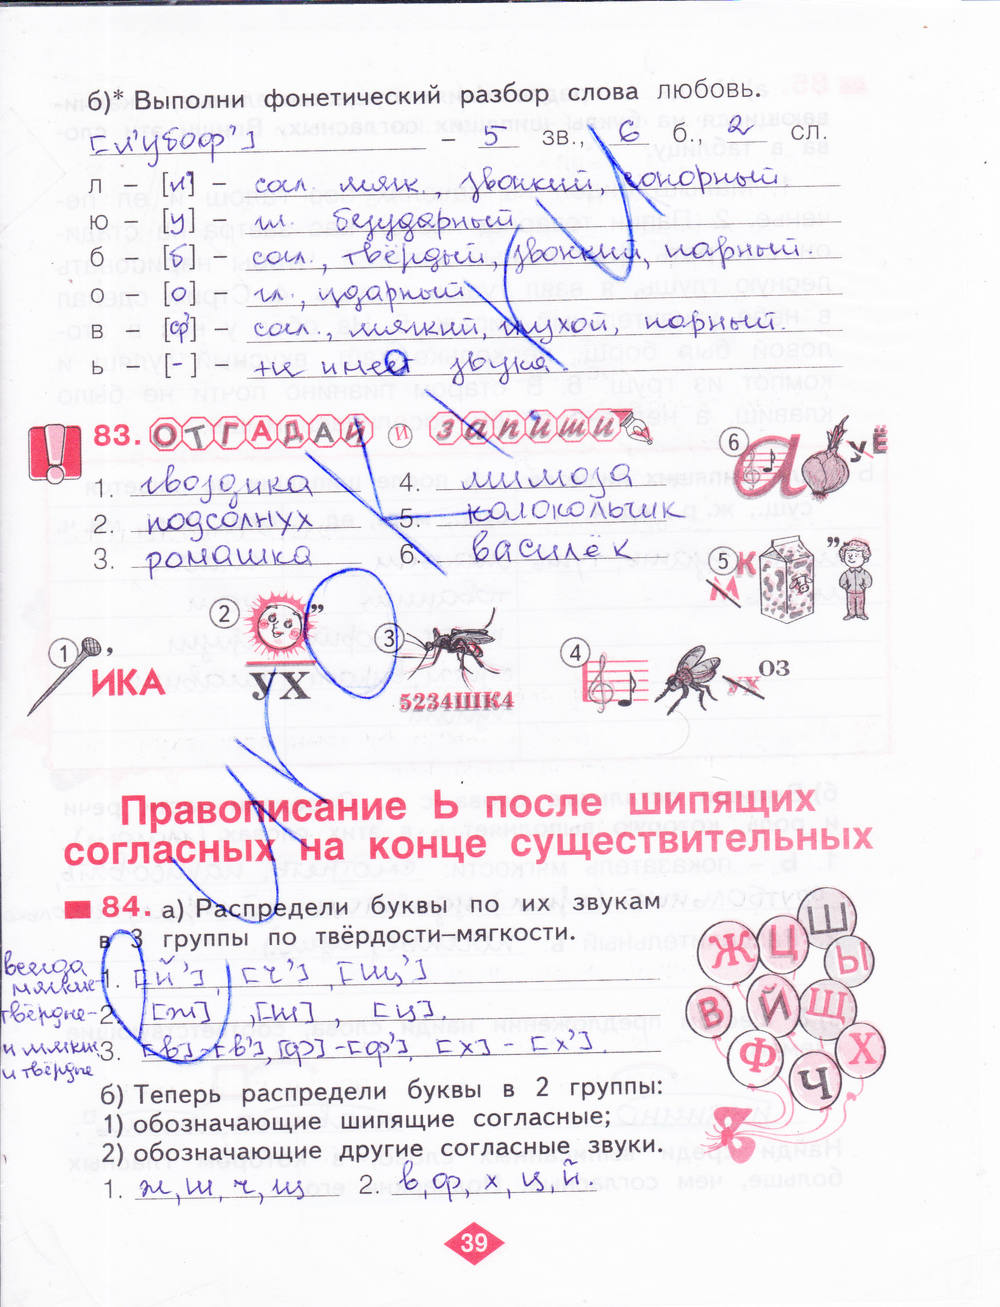 б)* Выполни фонетический разбор слова любовь.
[л'убоф'] – 5 зв., 6 б. 2 сл.
л – [л'] – согл. мягк., звонкий, сонорный
ю – [у] – гл. безударный
б – [б] – согл., твёрдый, звонкий, парный.
о – [о] – гл., ударный
в – [ф'] – согл., мягкий, глухой, парный.
ь – [-] – не имеет звука
83. ОТГАДАЙ И ЗАПИШИ
1. гвоздика 4. мимоза
2. подсолнух 5. колокольчик
3. ромашка 6. василёк
6 А УЁ
5 К М ”
1 , ИКА
2 ” УХ
3 5234ШК4
4 УХ ОЗ
Правописание Ь после шипящих
согласных на конце существительных
84. а) Распредели буквы по их звукам
в 3 группы по твёрдости–мягкости.
всегда мягкие- 1. [й'], [ч'], [щ']
твёрдые- 2. [ж], [ш], [ц].
и мягкие и твёрдые 3. [в]-[в'], [ф]-[ф'], [х]-[х'].
Ж Ц Ш Ы В Й Щ Ф Ч Х
б) Теперь распредели буквы в 2 группы:
1) обозначающие шипящие согласные;
2) обозначающие другие согласные звуки.
1. ж, ш, ч, щ 2. в, ф, х, ц, й.
39